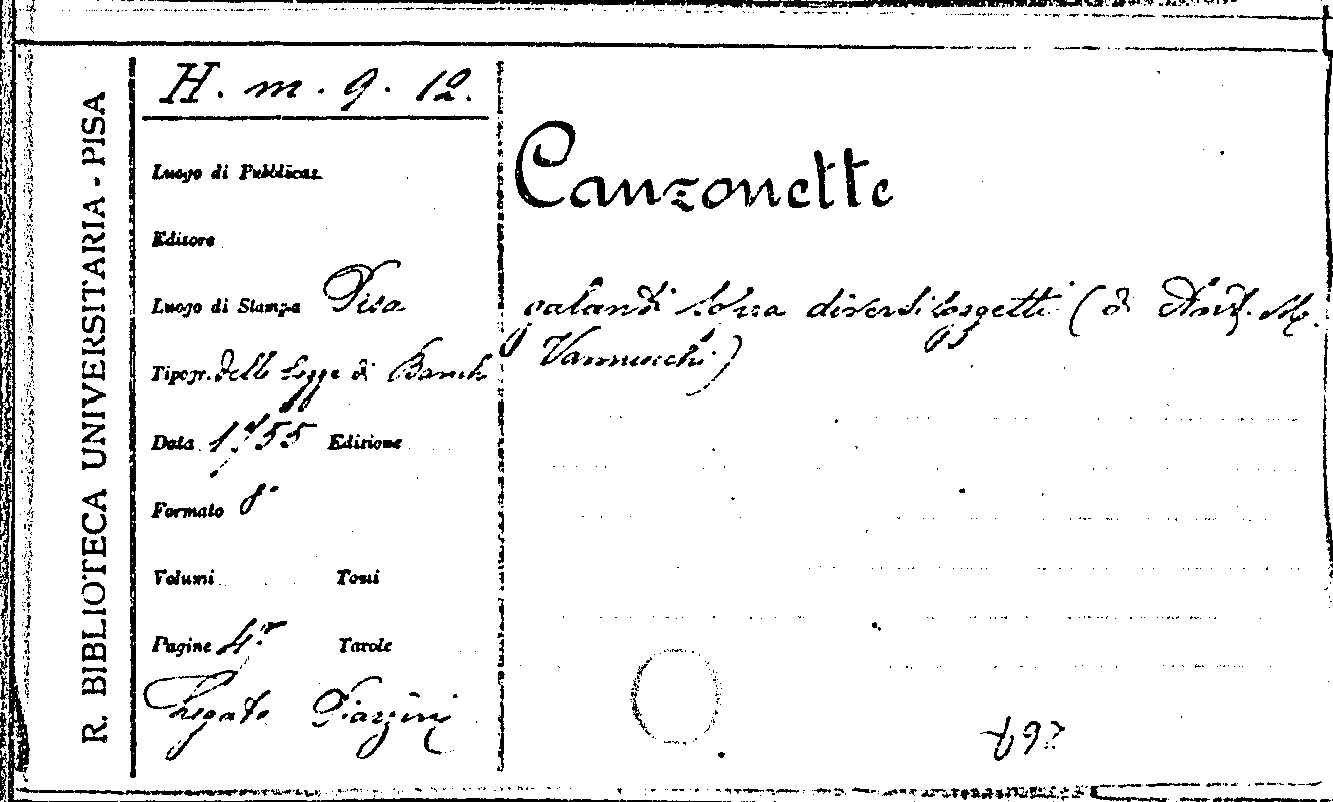 R. BIBLIOTECA UNIVERSITARIA - PISA
H. m. 9. 12.
Luogo di Pubblicaz.
Editore
Luogo di Stampa Pisa
Tipogr. delle Logge di Banchi
Data 1755 Edizione
Formato 8°
Volumi Tomi
Pagine Tavole
Legato Piazzini
Canzonette
galanti sopra diversi soggetti (di Ant. M.
Vannucchi)